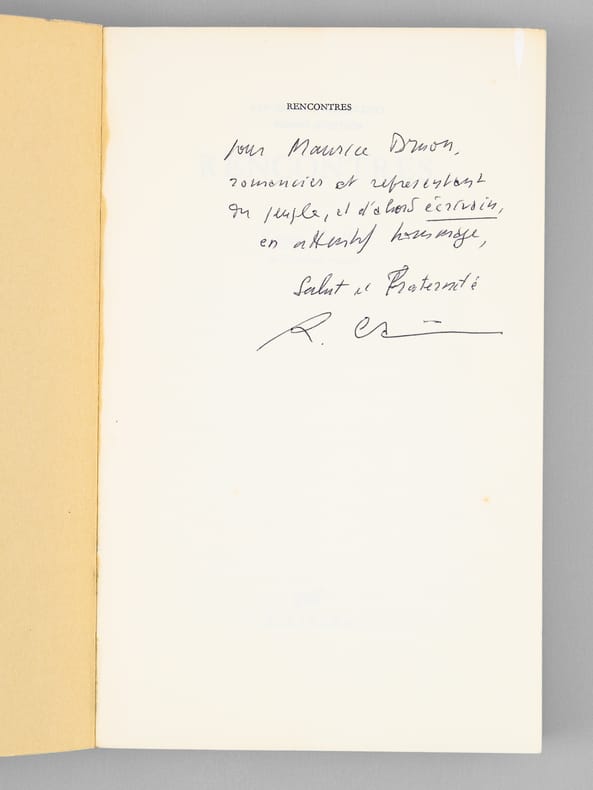 RENCONTRES
pour Maurice Druon,
romancier et représentant
du peuple, et d'abord écrivain,
en attentif hommage,
Salut et Fraternité
R.